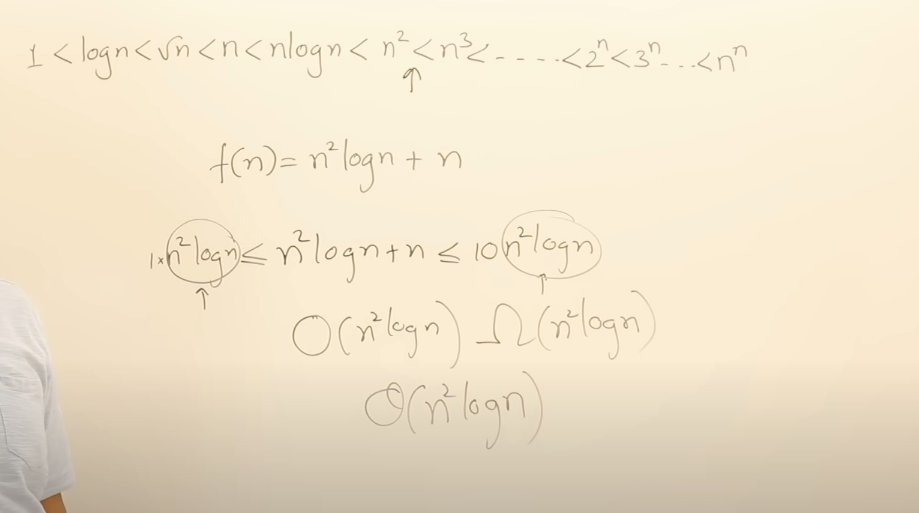 1 < logn < √n < n < nlogn < n² < n³ < - - - - < 2ⁿ < 3ⁿ - - - < nⁿ
↑
f(n) = n²logn + n
1× n²logn ≤ n²logn + n ≤ 10 n²logn
↑ ↑
O(n²logn) Ω(n²logn)
Θ(n²logn)